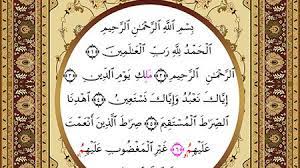 بِسْمِ ٱللَّهِ ٱلرَّحْمَٰنِ ٱلرَّحِيمِ
ٱلْحَمْدُ لِلَّهِ رَبِّ ٱلْعَٰلَمِينَ ۝
ٱلرَّحْمَٰنِ ٱلرَّحِيمِ ۝ مَلِكِ يَوْمِ ٱلدِّينِ ۝
إِيَّاكَ نَعْبُدُ وَإِيَّاكَ نَسْتَعِينُ ۝ ٱهْدِنَا
ٱلصِّرَٰطَ ٱلْمُسْتَقِيمَ ۝ صِرَٰطَ ٱلَّذِينَ أَنْعَمْتَ
عَلَيْهِمُۥ ۝ غَيْرِ ٱلْمَغْضُوبِ عَلَيْهِمُۥ